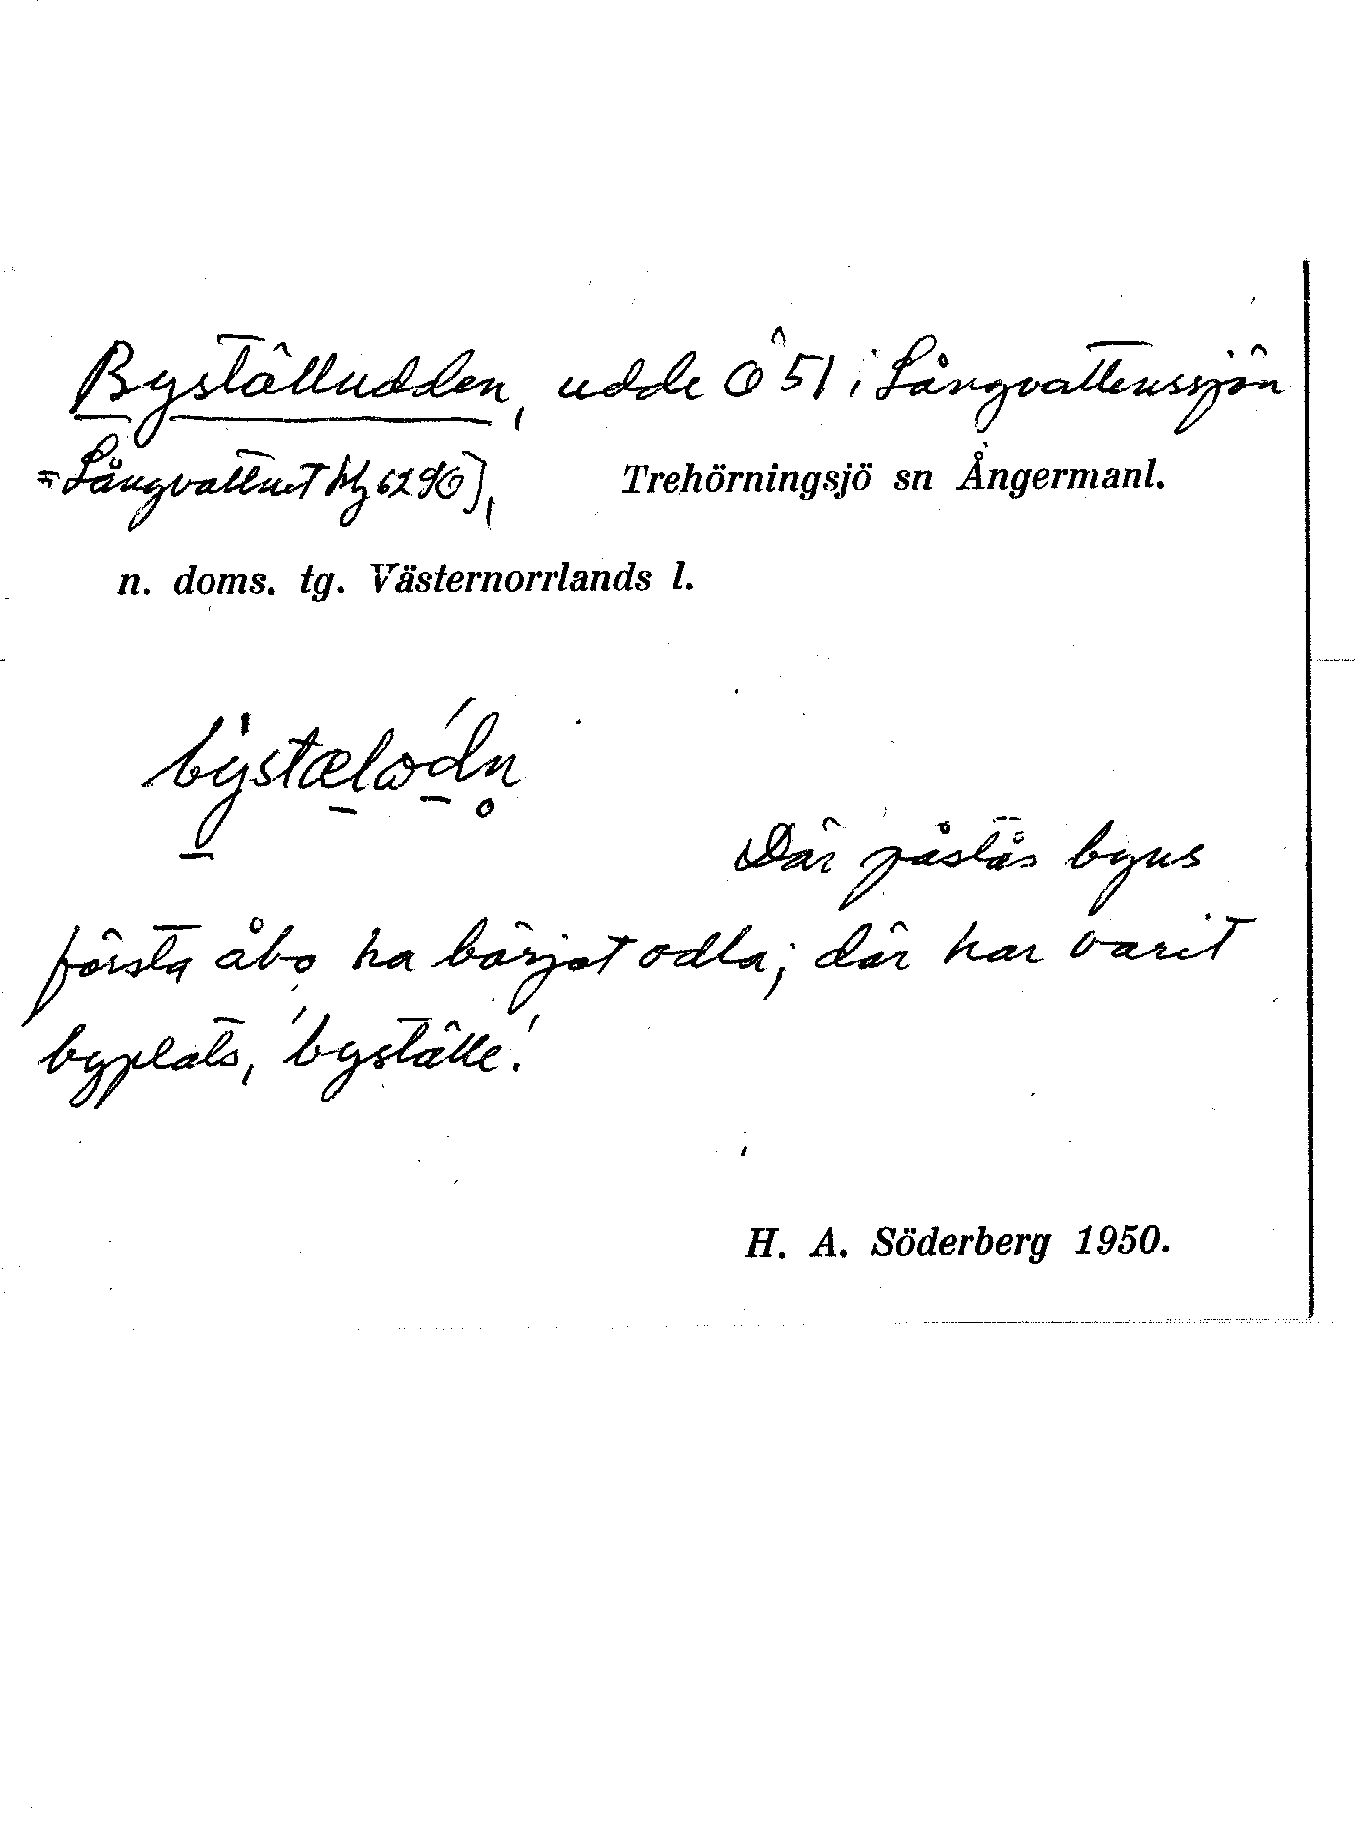 Byställudden, udde Ö 51 i Långvattenssjön
= Långvattnet 62 96],
Trehörningsjö sn Ångermanl.
n. doms. tg. Västernorrlands l.
Där påstås byns
första åbo ha börjat odla; där har varit
byplats, 'byställe'.
H. A. Söderberg 1950.